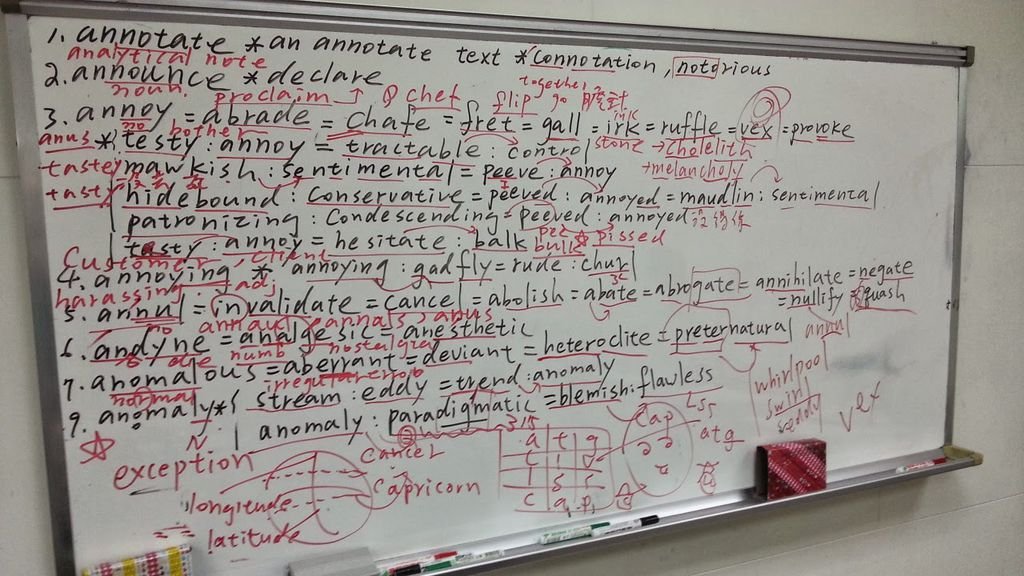 1. annotate * an annotate text * connotation, notorious
analytical note
2. announce * declare
noun. proclaim → Q chef flip together go
3. annoy = abrade = chafe = fret = gall = irk = ruffle = vex = provoke
no bother stone → cholelith
anus * testy : annoy = tractable : control
+melancholy
tastey mawkish : sentimental = peeve : annoy
tasty hidebound : conservative = peeved : annoyed = maudlin : sentimental
patronizing : condescending = peeved : annoyed
tasty : annoy = hesitate : balk pee pissed
bull
Customer, client
4. annoying * annoying : gadfly = rude : churl
harassing adj
5. annul = invalidate = cancel = abolish = abate = abrogate = annihilate = negate
= nullify quash
no annual annals anus
6. andyne = analgesic = anesthetic
numb nostalgia
7. anomalous = aberrant = deviant = heteroclite = preternatural annul
normal irregular
9. anomaly * stream : eddy = trend : anomaly
N anomaly : paradigmatic = blemish : flawless
exception
cancer
Capricorn
longitude
latitude
a t g
Cap
atg
whirlpool
swirl
eddy
vex